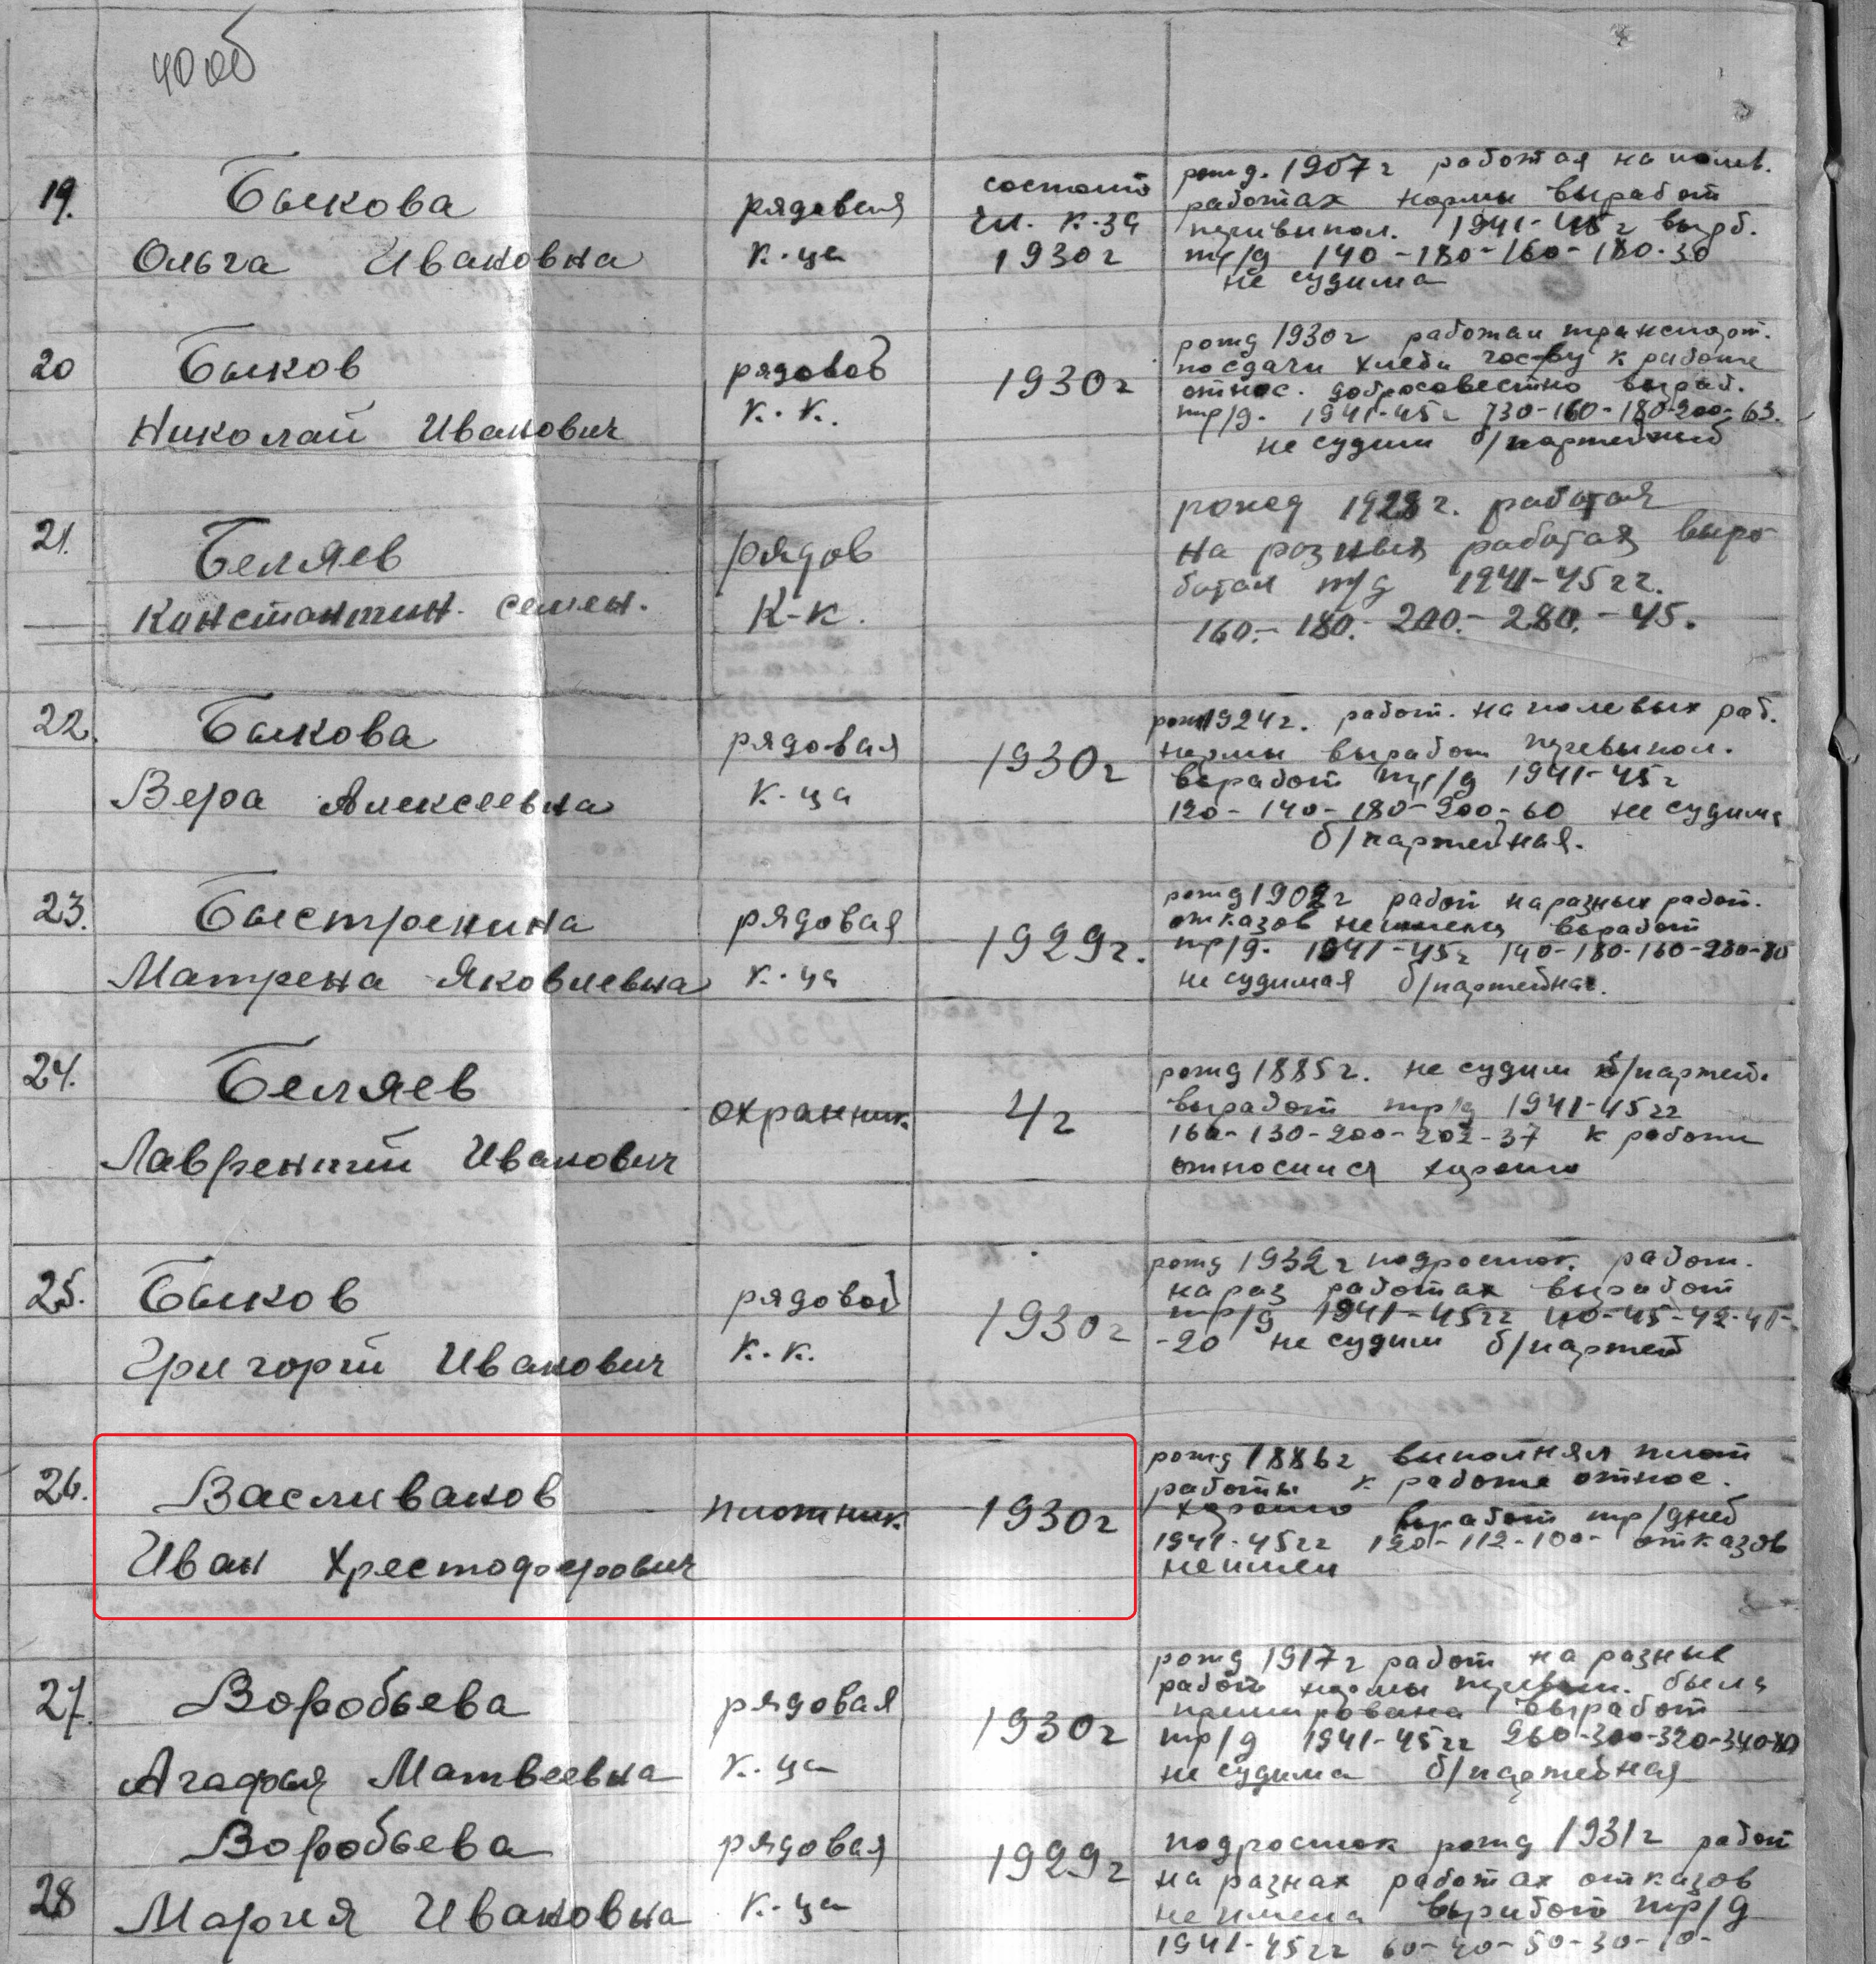 40 об
19.
Быкова
Ольга Ивановна
рядовая
к-ца
состоит
чл. к-за
1930 г
рожд. 1907 г работая на полев.
работах нормы выработ
перевыпол. 1941-45 г выраб.
тр/д 140-180-160-180-30
не судима
20
Быков
Николай Иванович
рядовой
к.к.
1930 г
рожд 1930 г работал транспорт.
по сдачи хлеба гос-ву к работе
относ. добросовестно выраб.
тр/д. 1941-45 г 130-160-180-200-63.
не судим б/партейный
21.
Беляев
Константин. семен.
рядов
К-к.
рожед 1928 г. работая
на разных работах выро
ботал т/д 1941-45 гг.
160.- 180.- 200.- 280.- 45.
22.
Быкова
Вера Алексеевна
рядовая
к-ца
1930 г
рожд 1924 г. работ. на полевых раб.
нормы выработ перевыпол.
выработ тр/д 1941-45 г
120-140-180-200-60 не судима
б/партейная.
23.
Быстренина
Матрена Яковлевна
рядовая
к-ца
1929 г.
рожд 1902 г работ на разных работ.
отказов не имела выработ
тр/д. 1941-45 г 140-180-160-200-80
не судимая б/партейная.
24.
Беляев
Лаврентий Иванович
охранник
4 г
рожд 1885 г. не судим б/партей.
выработ тр/д 1941-45 гг
160-130-200-202-37 к работе
относился хорошо
25.
Быков
Григорий Иванович
рядовой
к.к.
1930 г
рожд 1932 г подросток. работ.
на раз работах выработ
тр/д 1941-45 гг 40-45-42-41-
-20 не судим б/партей
26.
Васливанов
Иван Хрестофорович
плотник
1930 г
рожд 1886 г выполнял плот
работы к работе относ.
хорошо выработ тр/дней
1941-45 гг 120-112-100- отказов
не имел
27.
Воробьева
Агафья Матвеевна
рядовая
к-ца
1930 г
рожд 1917 г работ на разных
работ нормы перевып. была
премирована выработ
тр/д 1941-45 гг 260-300-320-340-80
не судима б/партейная
28
Воробьева
Мария Ивановна
рядовая
к-ца
1929 г
подросток рожд 1931 г работ
на разнах работах отказов
не имела выработ тр/д
1941-45 гг 60-40-50-30-10-